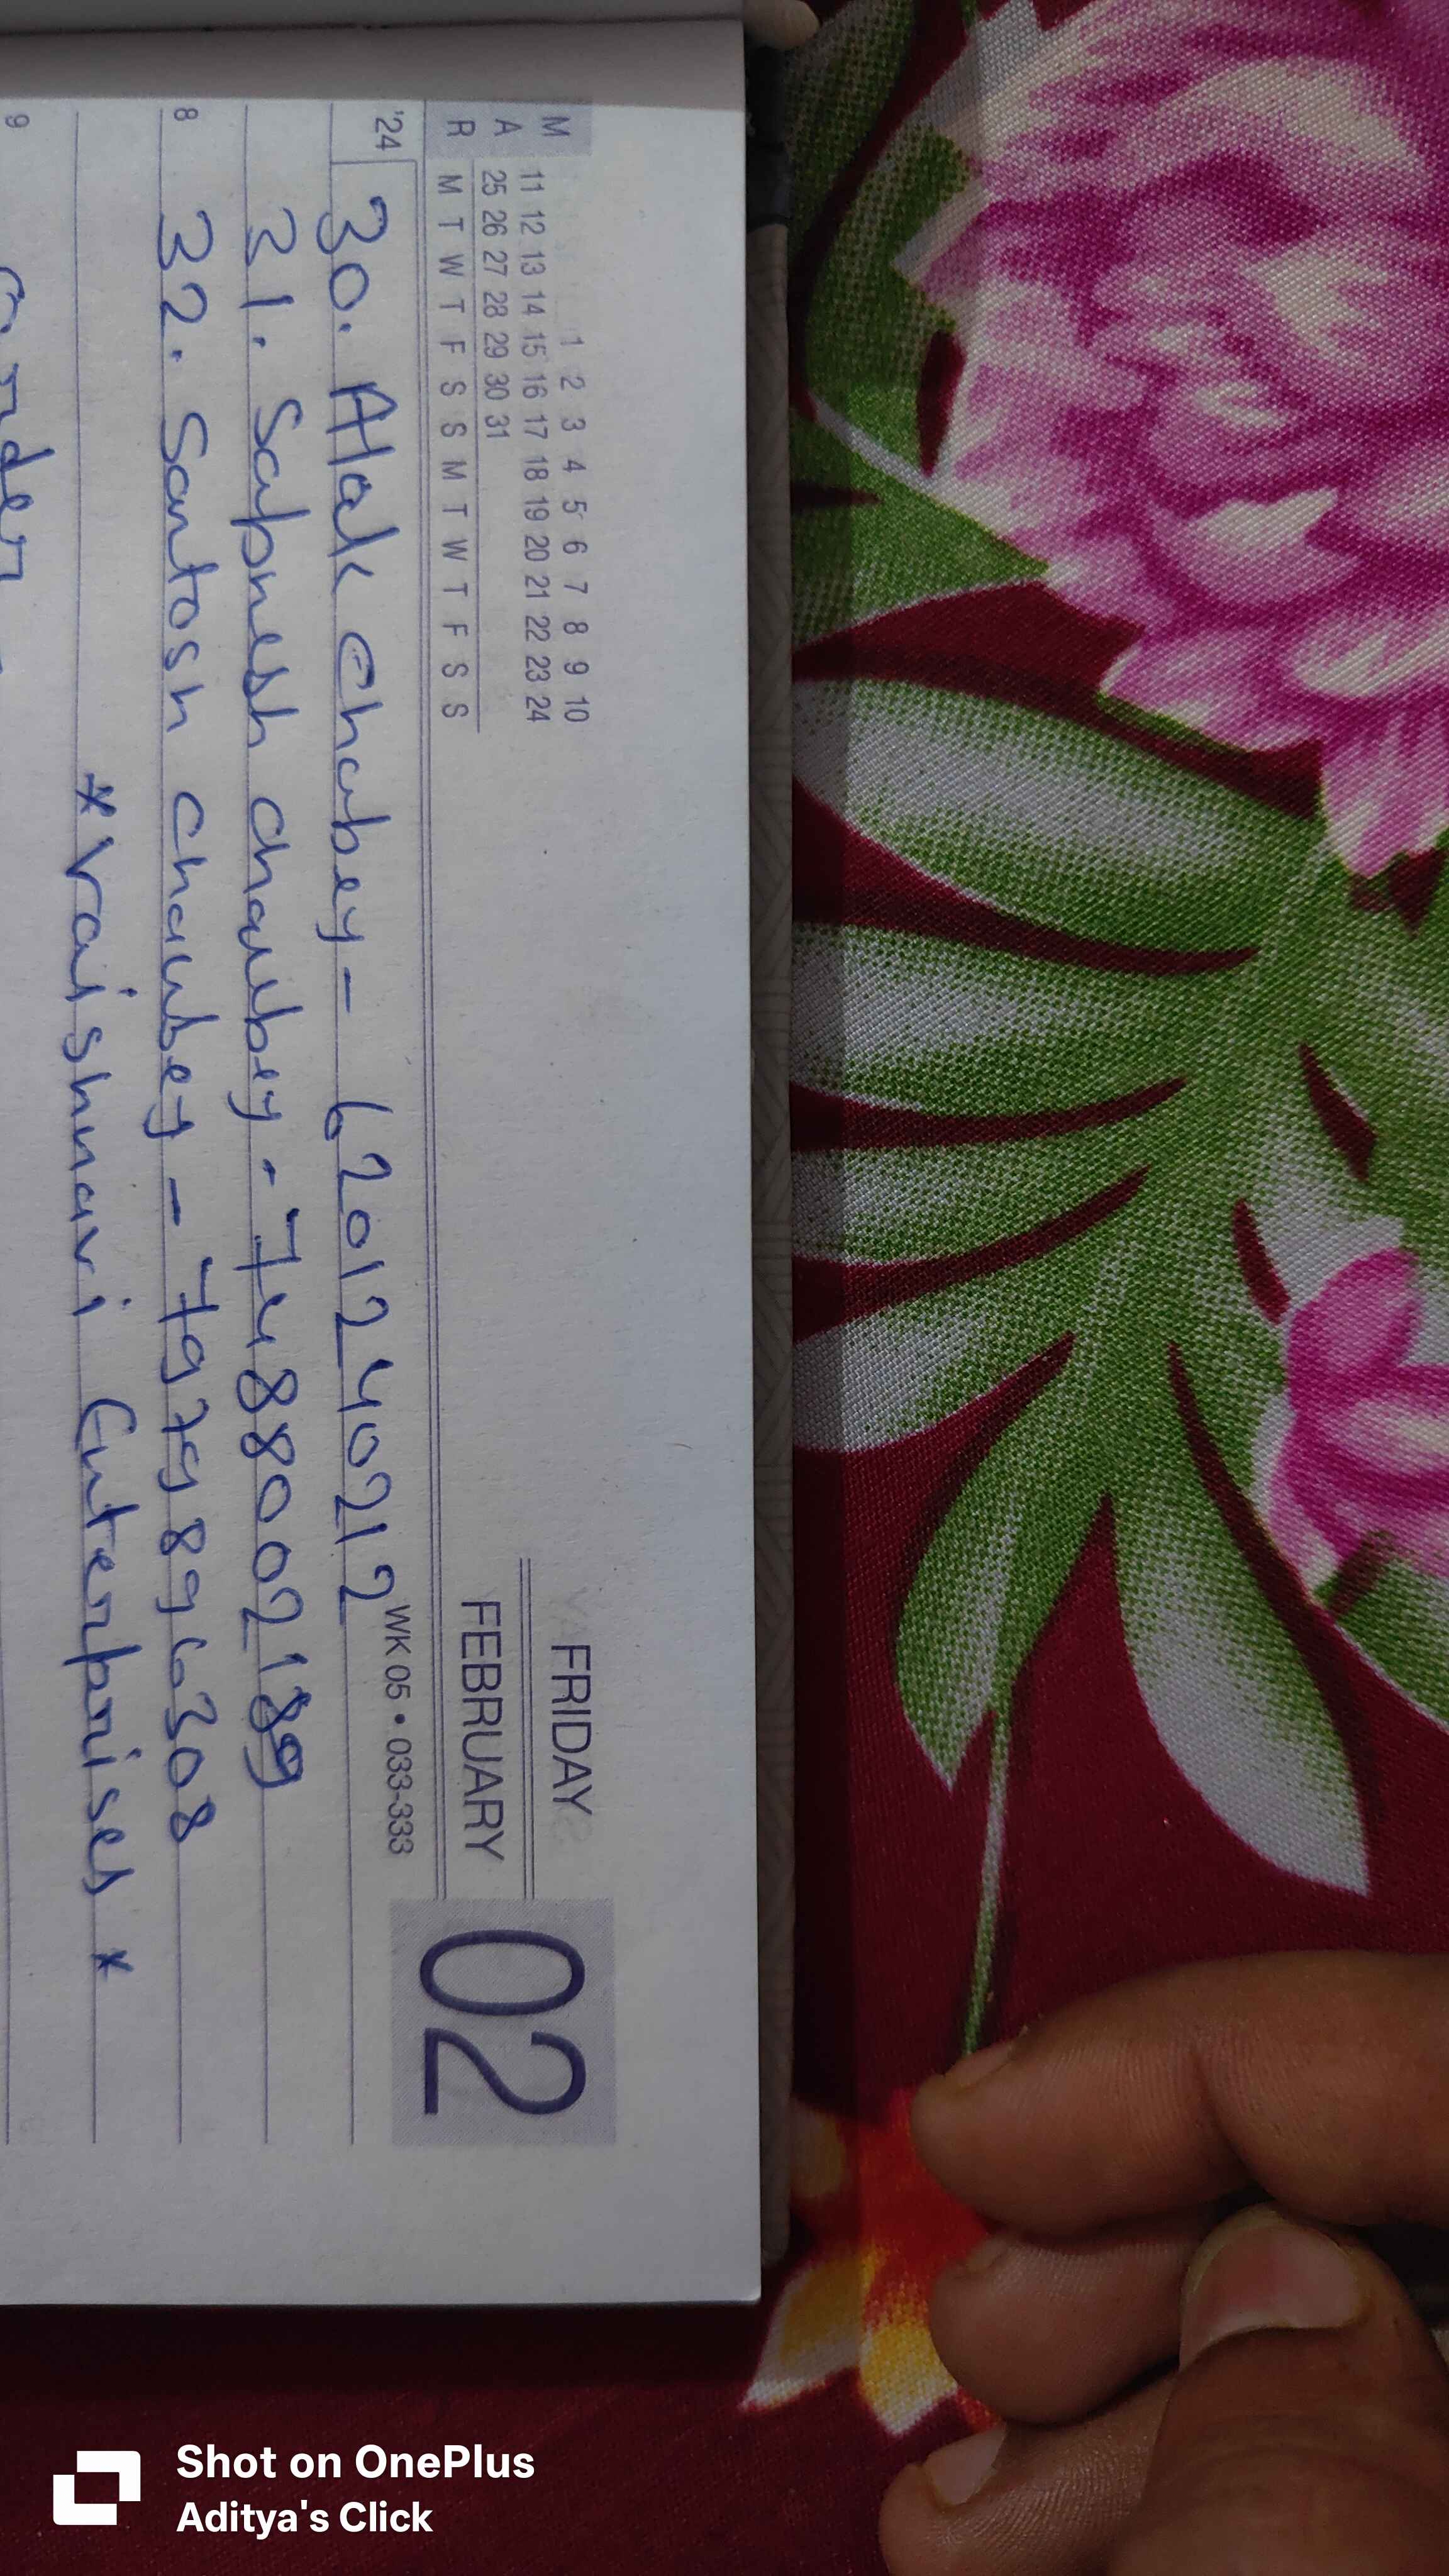 M A R
1 2 3 4 5 6 7 8 9 10
11 12 13 14 15 16 17 18 19 20 21 22 23 24
25 26 27 28 29 30 31
M T W T F S S M T W T F S S
FRIDAY
FEBRUARY
02
'24
WK 05 • 033-333
30. Alok Chaubey - 6201240212
31. Sapnesh chaubey - 7488002189
8
32. Santosh chaubey - 7979896308
* Vaishnavi Enterprises *
9
Shot on OnePlus
Aditya's Click